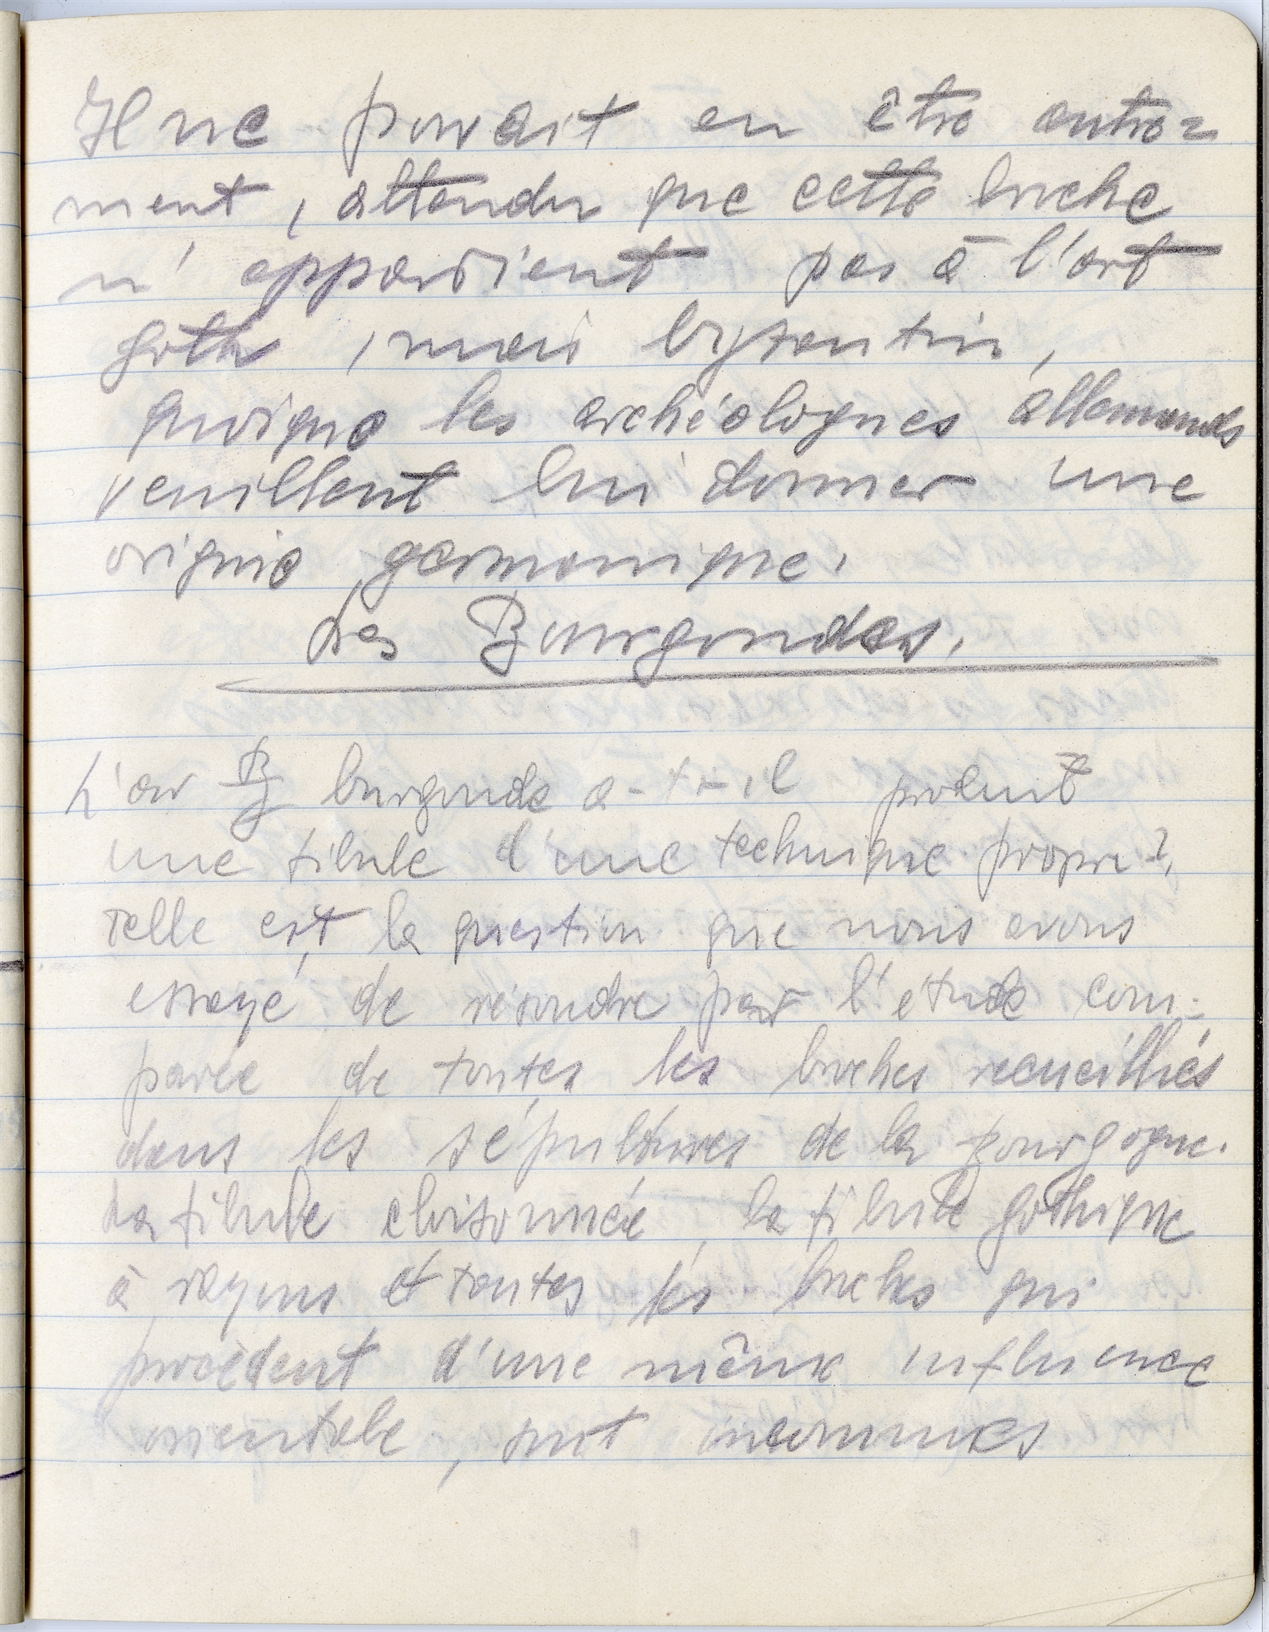 Il ne pouvait en être autre=
ment, attendu que cette broche
n'appartient pas à l'art
goth, mais byzantin,
quoique les archéologues allemands
veuillent lui donner une
origine germanique.
Les Burgondes.
L'art burgonde a-t-il produit
une fibule d'une technique propre?,
telle est la question que nous avons
essayé de résoudre par l'étude com-
parée de toutes les broches recueilliés
dans les sépultures de la Bourgogne.
La fibule cloisonnée, la fibule gothique
à rayons et toutes les broches qui
procèdent d'une même influence
orientale, sont inconnues